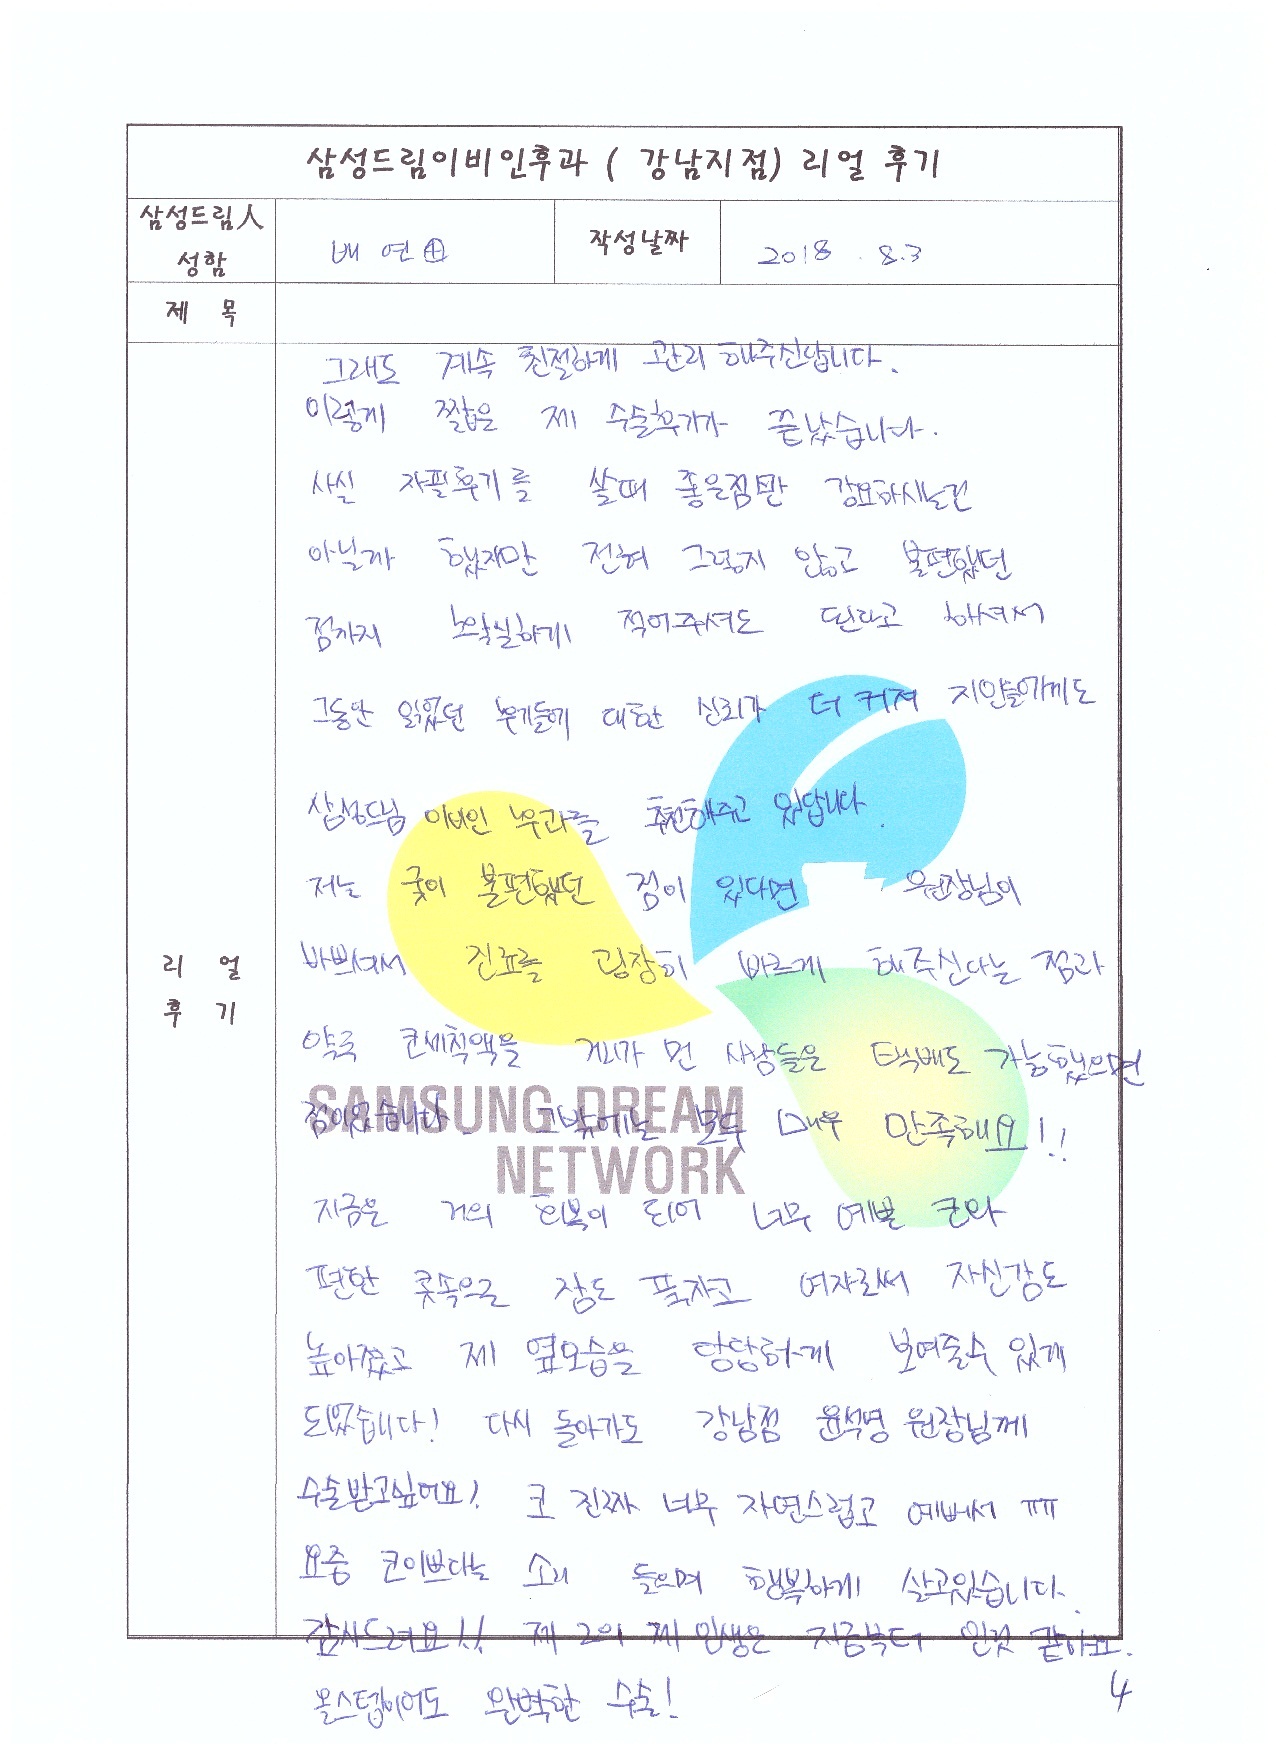 삼성드림이비인후과 ( 강남지점) 리얼 후기
삼성드림人 성함
배 연
작성날짜
2018 . 8.3
제 목
리 얼 후 기
그래도 계속 친절하게 관리 해주신답니다.
이렇게 짧은 제 수술후기가 끝났습니다.
사실 자필후기를 쓸때 좋은점만 강요하시는건
아닐까 했지만 전혀 그렇지 않고 불편했던
점까지 확실하게 적어주셔도 된다고 하셔서
그동안 읽었던 후기들에 대한 신뢰가 더 커져 지인들에게도
삼성드림 이비인 후과를 추천해주고 있답니다.
저는 굳이 불편했던 점이 있다면 원장님이
바쁘셔서 진료를 굉장히 빠르게 해주신다는 점과
약국 코세척액을 거리가 먼 사람들은 택배도 가능했으면
점이있습니다. 그밖에는 모두 매우 만족해요!!
SAMSUNG DREAM
NETWORK
지금은 거의 회복이 되어 너무 예쁜 코와
편한 콧속으로 잠도 푹자고 여자로써 자신감도
높아졌고 제 옆모습을 당당하게 보여줄수 있게
되었습니다! 다시 돌아가도 강남점 윤석영 원장님께
수술받고싶어요! 코 진짜 너무 자연스럽고 예뻐서 ㅠㅠ
요즘 코이쁘다는 소리 들으며 행복하게 살고있습니다.
감사드려요!! 제 2의 제 인생은 지금부터 인것 같아요.
몽스텝이어도 완벽한 수술!
4